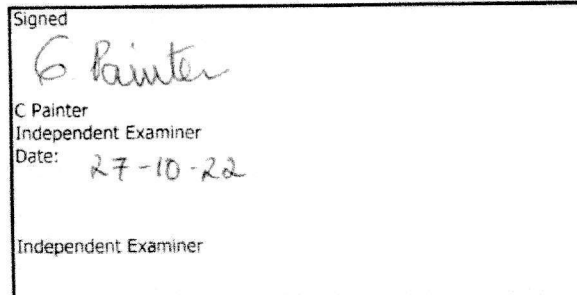 Signed
C Painter
C Painter
Independent Examiner
Date: 27-10-22
Independent Examiner